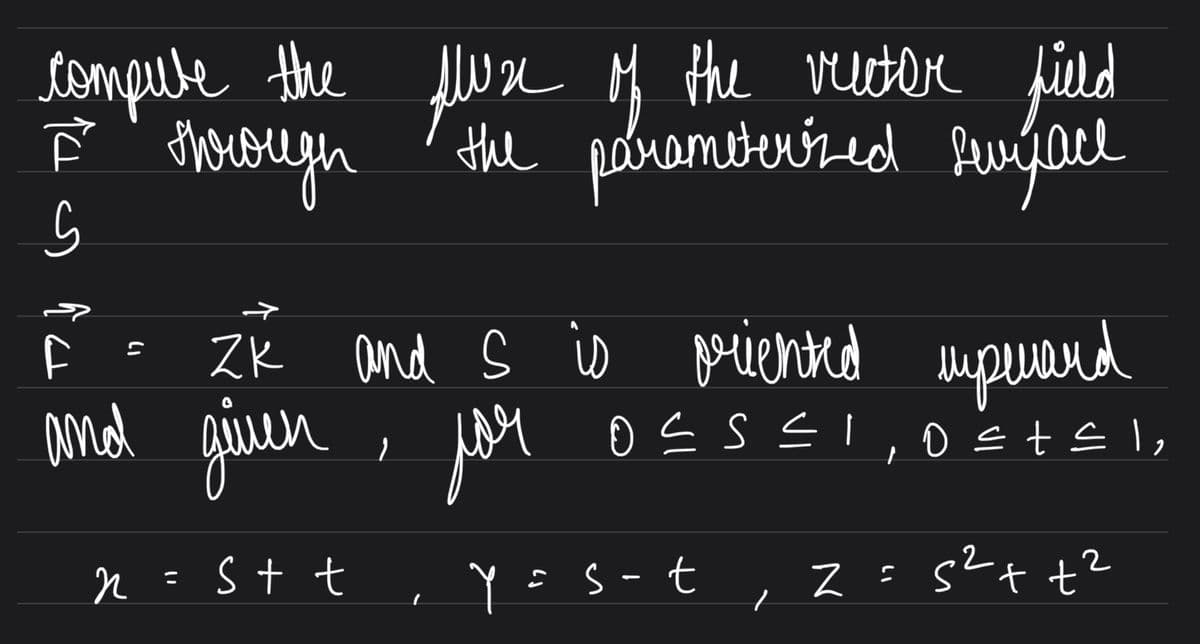 compute the flux of the vector field
F⃗ through the parameterized surface
S
F⃗ = zk⃗ and S is oriented upward
and given, for 0 ≤ s ≤ 1, 0 ≤ t ≤ 1,
x = s + t, y = s - t, z = s² + t²